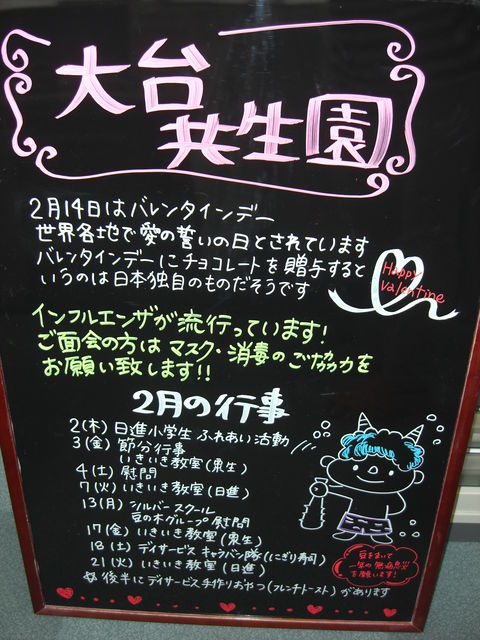 大台
共生園
2月14日はバレンタインデー
世界各地で愛の誓いの日とされています
バレンタインデーにチョコレートを贈与すると
いうのは日本独自のものだそうです
Happy
Valentine
インフルエンザが流行っています!
ご面会の方はマスク・消毒のご協力を
お願い致します!!
2月の行事
2(木) 日進小学生 ふれあい活動
3(金) 節分行事
いきいき教室(東生)
4(土) 慰問
7(火) いきいき教室(日進)
13(月) シルバースクール
豆の木グループ慰問
17(金) いきいき教室(東生)
18(土) デイサービス キャラバン隊(にぎり寿司)
21(火) いきいき教室(日進)
☆後半にデイサービス手作りおやつ(フレンチトースト)があります
豆をまいて
一年の無病息災
を願います!